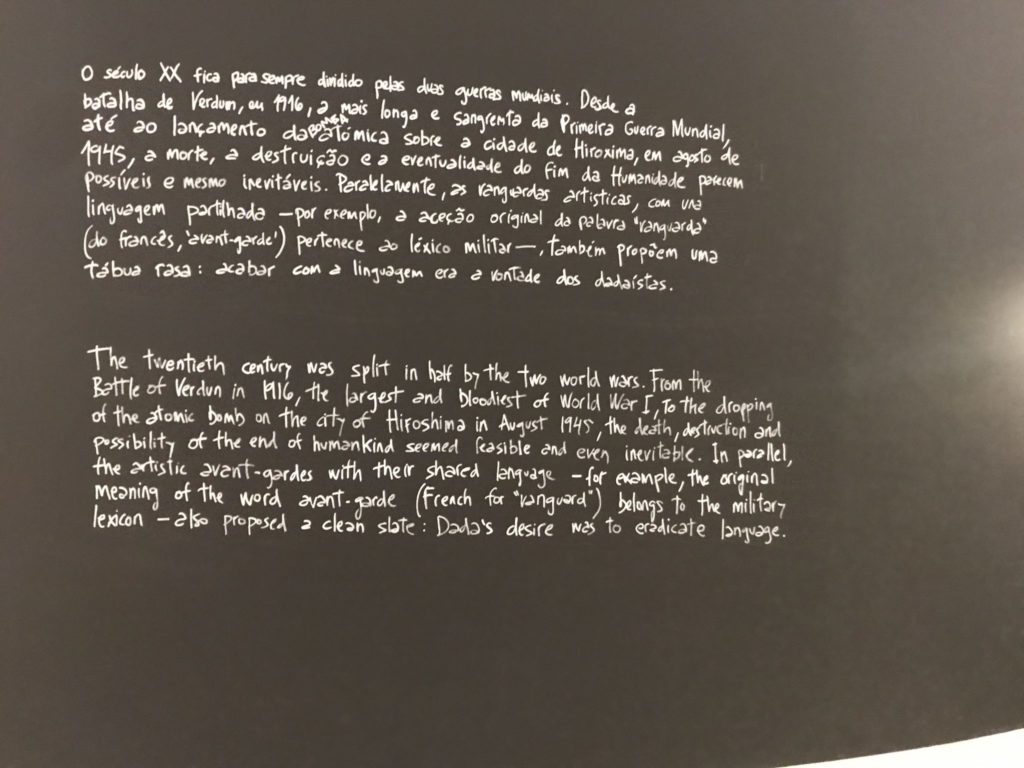 O século XX fica para sempre dividido pelas duas guerras mundiais. Desde a
batalha de Verdum, em 1916, a mais longa e sangrenta da Primeira Guerra Mundial,
até ao lançamento da BOMBA atómica sobre a cidade de Hiroxima, em agosto de
1945, a morte, a destruição e a eventualidade do fim da Humanidade parecem
possíveis e mesmo inevitáveis. Paralelamente, as vanguardas artísticas, com uma
linguagem partilhada —por exemplo, a aceção original da palavra "vanguarda"
(do francês, 'avant-garde') pertence ao léxico militar—, também propõem uma
tábua rasa: acabar com a linguagem era a vontade dos dadaístas.
The twentieth century was split in half by the two world wars. From the
Battle of Verdun in 1916, the largest and bloodiest of World War I, to the dropping
of the atomic bomb on the city of Hiroshima in August 1945, the death, destruction and
possibility of the end of humankind seemed feasible and even inevitable. In parallel,
the artistic avant-gardes with their shared language –for example, the original
meaning of the word avant-garde (French for "vanguard") belongs to the military
lexicon –also proposed a clean slate: Dada's desire was to eradicate language.